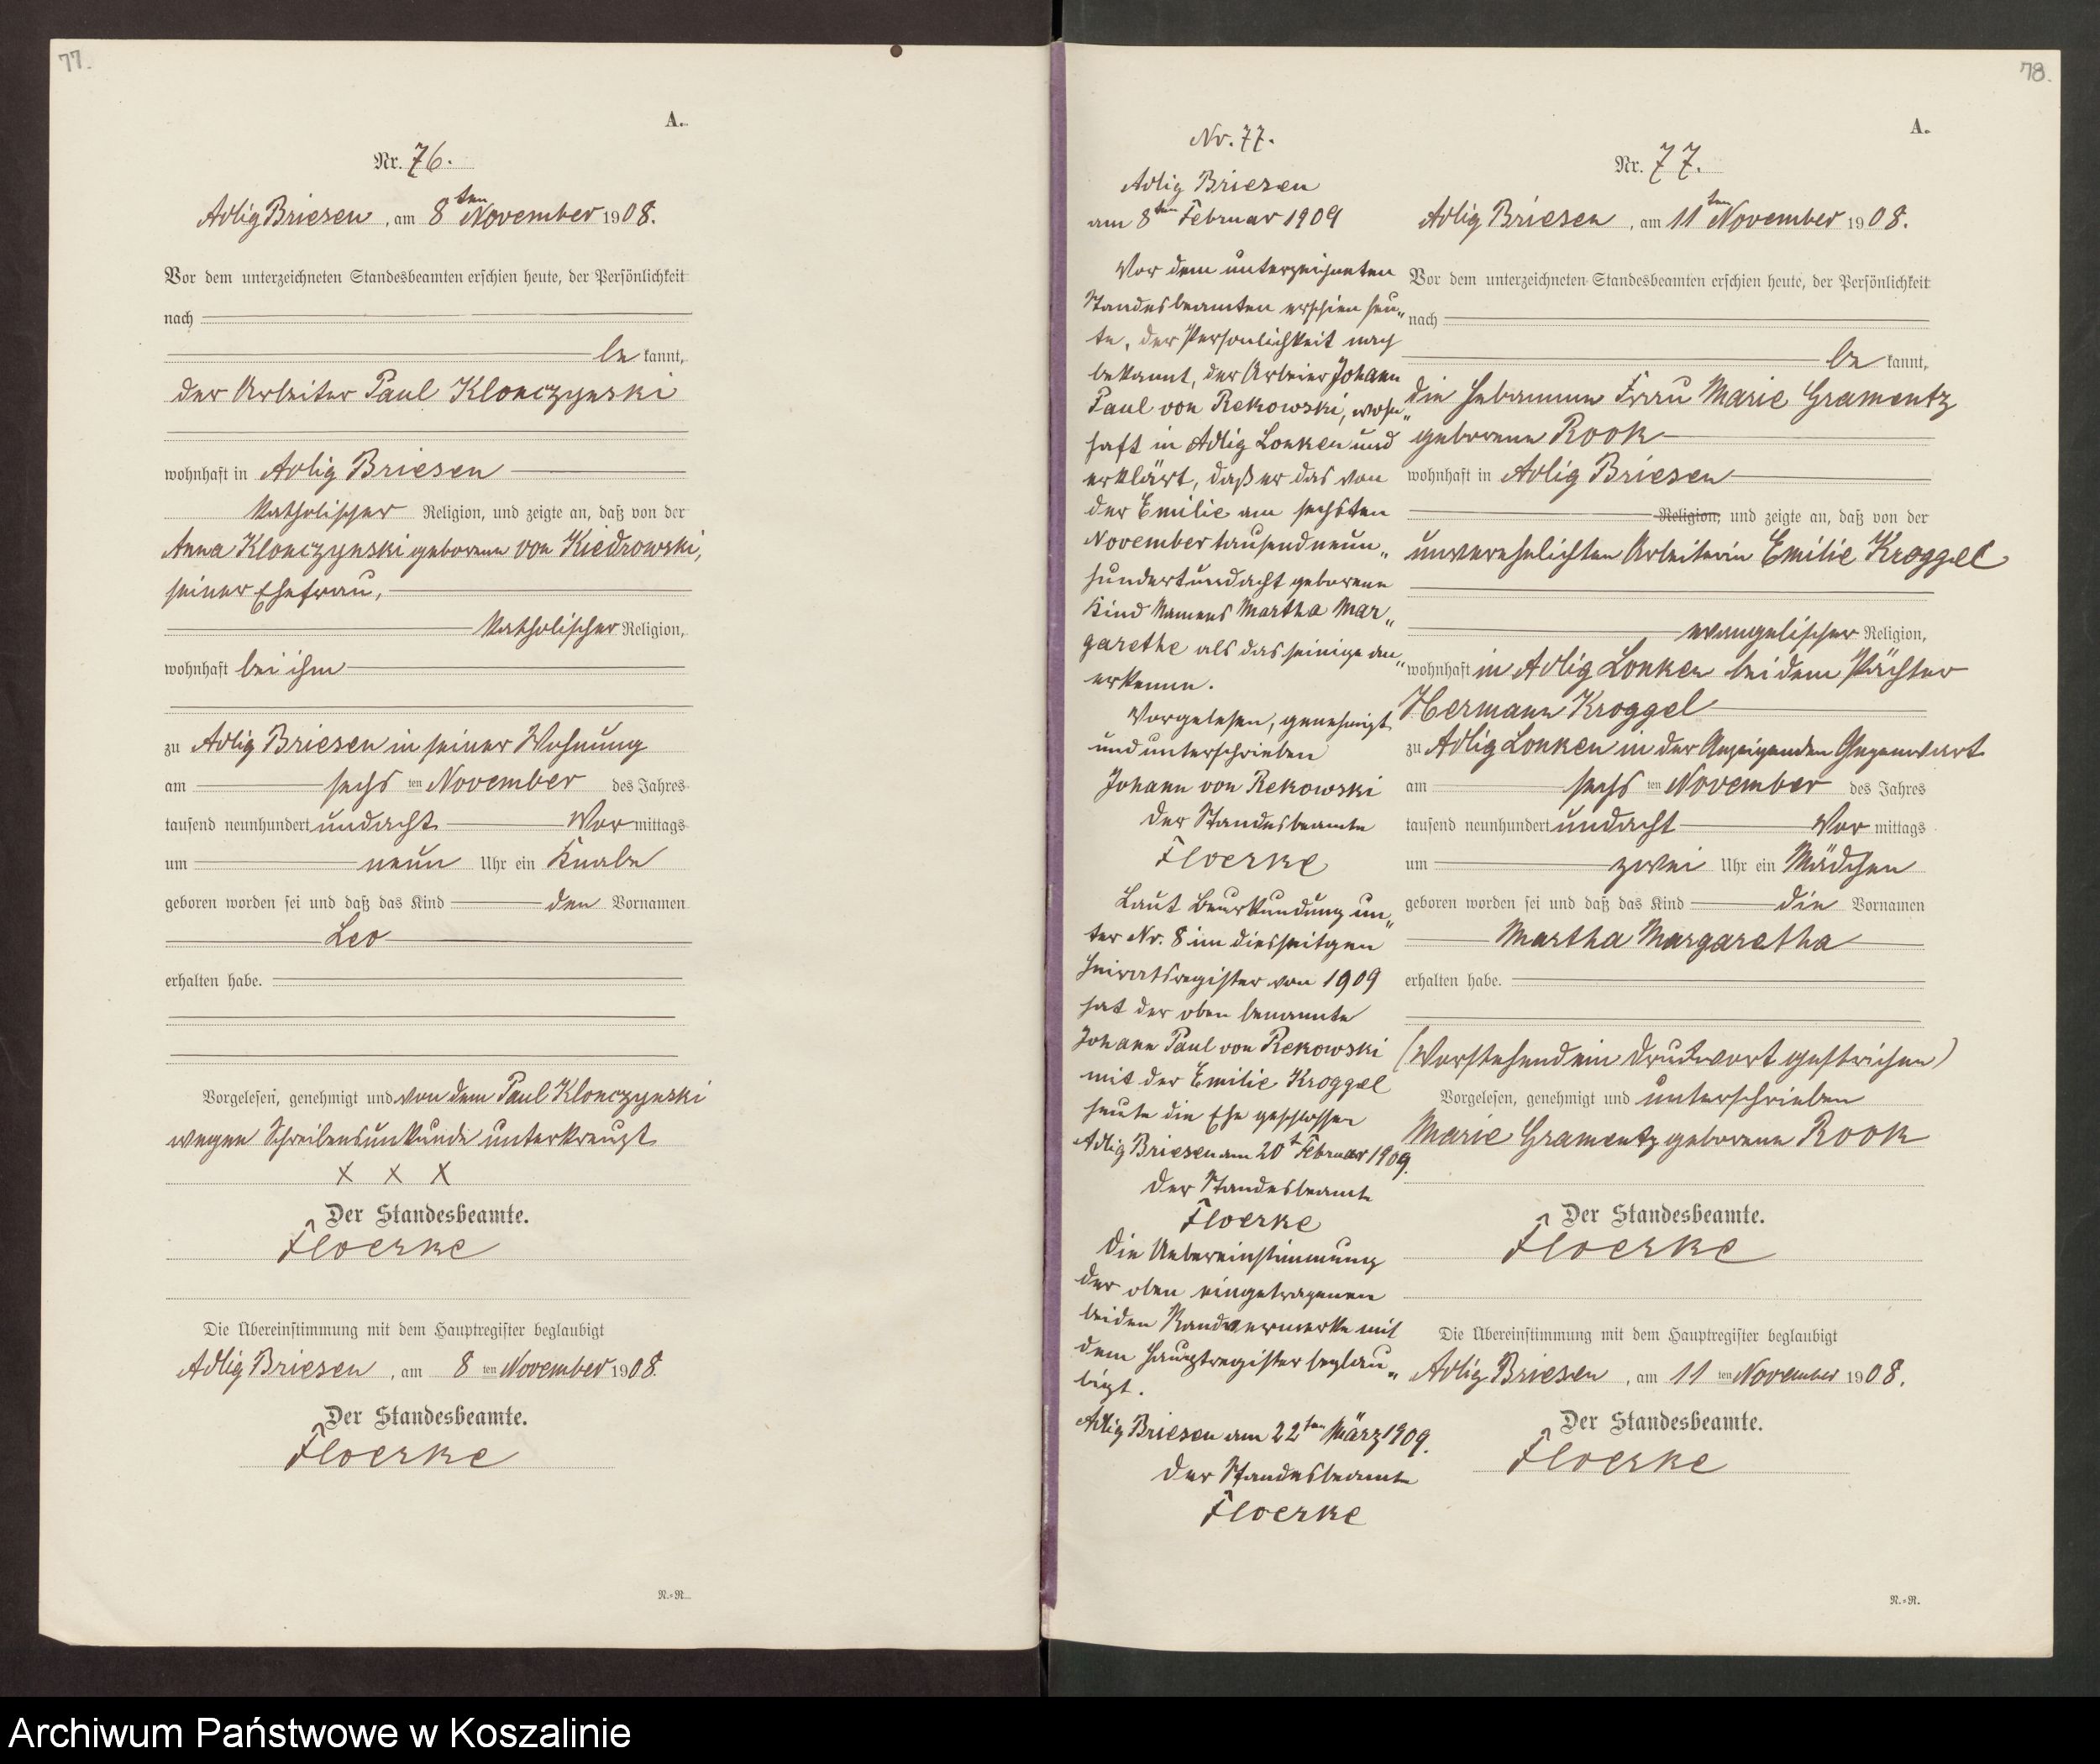 77.
A.
Nr. 76.
Adlig Briesen, am 8ten November 1908.
Vor dem unterzeichneten Standesbeamten erschien heute, der Persönlichkeit
nach
be kannt,
der Arbeiter Paul Klonczynski
wohnhaft in Adlig Briesen
katholischer Religion, und zeigte an, daß von der
Anna Klonczynski geborene von Kiedrowski,
seiner Ehefrau,
katholischer Religion,
wohnhaft bei ihm
zu Adlig Briesen in seiner Wohnung
am sechs ten November des Jahres
tausend neunhundert undacht Vor mittags
um neun Uhr ein Knabe
geboren worden sei und daß das Kind den Vornamen
Leo
erhalten habe.
Vorgelesen, genehmigt und von dem Paul Klonczynski
wegen Schreibensunkunde unterkreuzt
X X X
Der Standesbeamte.
Floerke
Die Übereinstimmung mit dem Hauptregister beglaubigt
Adlig Briesen, am 8 ten November 1908.
Der Standesbeamte.
Floerke
N.=R.
78.
No. 77.
Adlig Briesen
am 8ten Februar 1909
Vor dem unterzeichneten
Standesbeamten erschien heu„
te, der Persönlichkeit nach
bekannt, der Arbeier Johann
Paul von Rekowski, wohn„
haft in Adlig Lonken und
erklärt, daß er das von
der Emilie am sechsten
November tausendneun„
hundertundacht geborene
Kind Namens Martha Mar„
garethe als das seinige an„
erkenne.
Vorgelesen, genehmigt
und unterschrieben
Johann von Rekowski
Der Standesbeamte
Floerke
Laut Beurkundung un„
ter Nr. 8 im diesseitgen
Heiratsregister von 1909
hat der oben benannte
Johann Paul von Rekowski
mit der Emilie Kroggel
heute die Ehe geschlossen
Adlig Briesen am 20t Februar 1909.
Der Standesbeamte
Floerke
Die Uebereinstimmung
der oben eingetragenen
beiden Randvermerke mit
dem Hauptregister beglau„
bigt.
Adlig Briesen am 22ten März 1909.
Der Standesbeamte
Floerke
A.
Nr. 77.
Adlig Briesen, am 11ten November 1908.
Vor dem unterzeichneten Standesbeamten erschien heute, der Persönlichkeit
nach
be kannt,
die Hebamme Frau Marie Gramentz
geborene Rook
wohnhaft in Adlig Briesen
Religion, und zeigte an, daß von der
unverehelichten Arbeiterin Emilie Kroggel
evangelischer Religion,
wohnhaft in Adlig Lonken bei dem Pächter
Hermann Kroggel
zu Adlig Lonken in der Anzeigenden Gegenwart
am sechs ten November des Jahres
tausend neunhundert undacht Vor mittags
um zwei Uhr ein Mädchen
geboren worden sei und daß das Kind die Vornamen
Martha Margaretha
erhalten habe.
(Vorstehend ein Druckwort gestrichen)
Vorgelesen, genehmigt und unterschrieben
Marie Gramentz geborene Rook
Der Standesbeamte.
Floerke
Die Übereinstimmung mit dem Hauptregister beglaubigt
Adlig Briesen, am 11 ten November 1908.
Der Standesbeamte.
Floerke
N.=R.
Archiwum Państwowe w Koszalinie